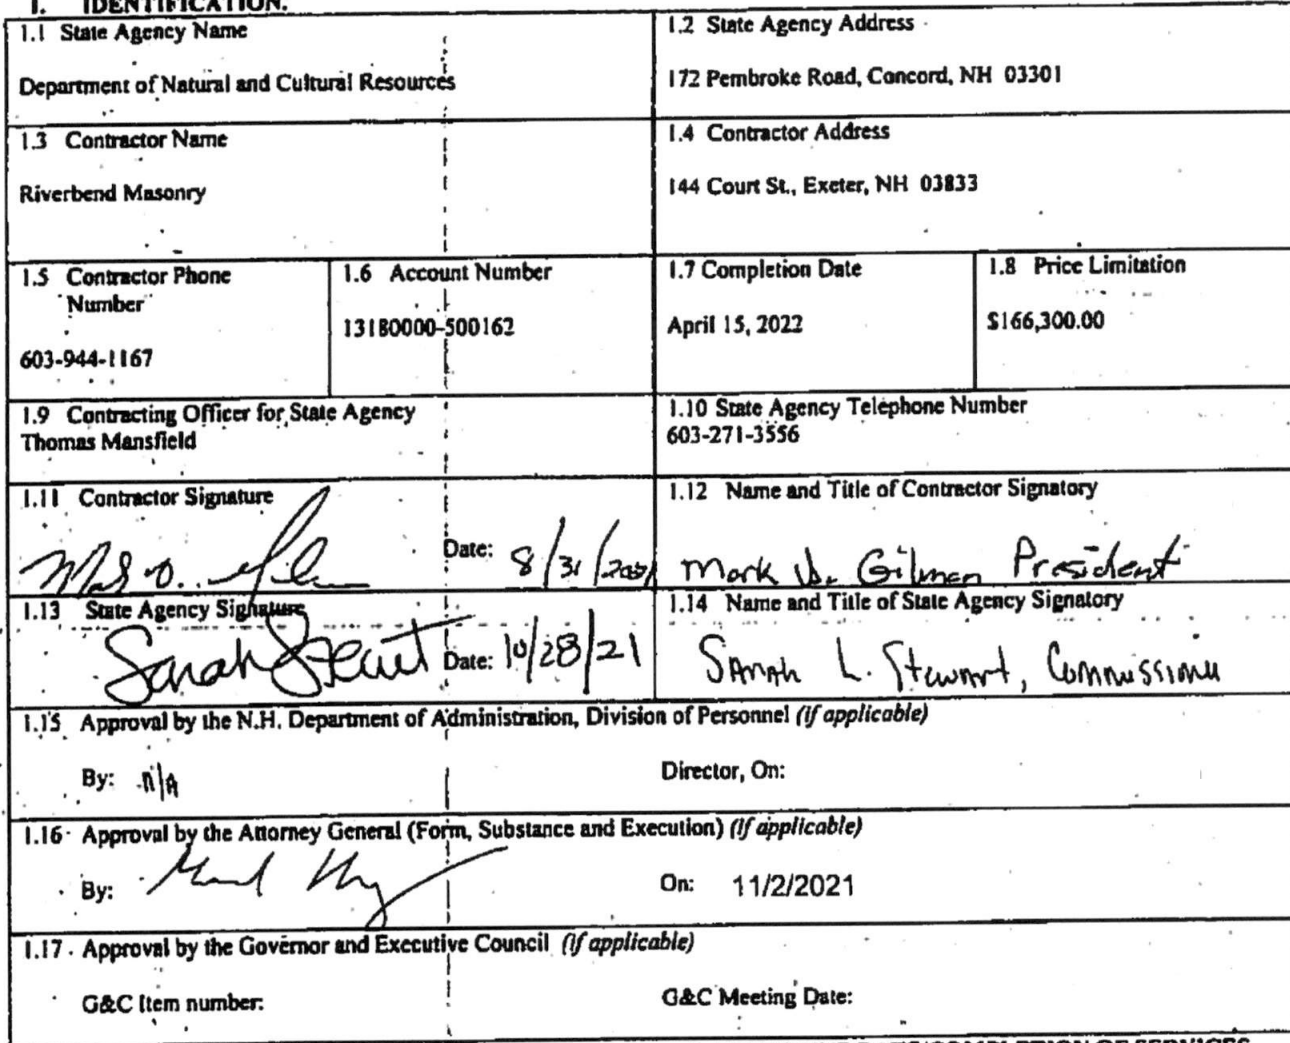 1. IDENTIFICATION.
1.1 State Agency Name
Department of Natural and Cultural Resources
1.2 State Agency Address
172 Pembroke Road, Concord, NH 03301
1.3 Contractor Name
Riverbend Masonry
1.4 Contractor Address
144 Court St., Exeter, NH 03833
1.5 Contractor Phone
Number
603-944-1167
1.6 Account Number
13180000-500162
1.7 Completion Date
April 15, 2022
1.8 Price Limitation
$166,300.00
1.9 Contracting Officer for State Agency
Thomas Mansfield
1.10 State Agency Telephone Number
603-271-3556
1.11 Contractor Signature
Date: 8/31/2021
1.12 Name and Title of Contractor Signatory
Mark D. Gilman President
1.13 State Agency Signature
Sarah Stewart Date: 10/28/21
1.14 Name and Title of State Agency Signatory
Sarah L. Stewart, Commissioner
1.15 Approval by the N.H. Department of Administration, Division of Personnel (if applicable)
By: n/A Director, On:
1.16 Approval by the Attorney General (Form, Substance and Execution) (if applicable)
By: On: 11/2/2021
1.17 Approval by the Governor and Executive Council (if applicable)
G&C Item number: G&C Meeting Date: